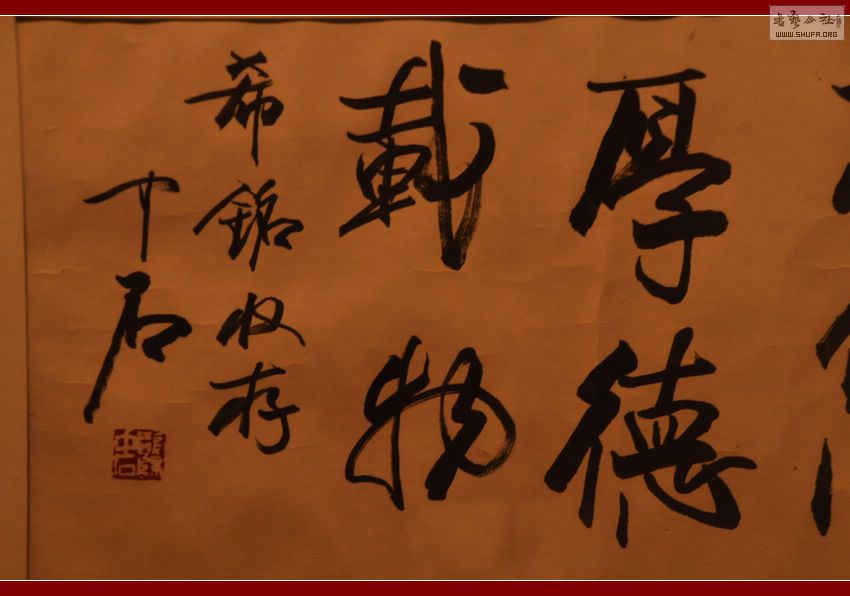 厚德
載物
希銘收存
中石
WWW.SHUFA.ORG